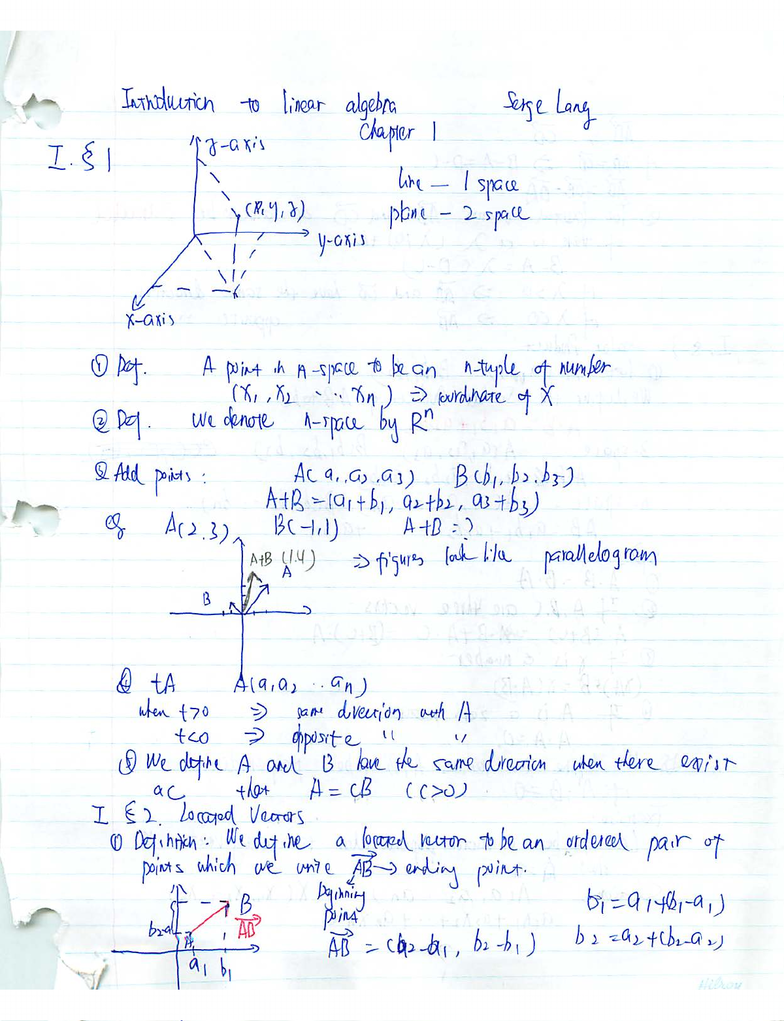 Introduction to linear algebra Serge Lang
Chapter 1
I. § 1
z-axis
line — 1 space
plane — 2 space
(x, y, z)
y-axis
x-axis
① Def. A point in n-space to be an n-tuple of number
(x1, x2 ... xn) ⇒ coordinate of X
② Def. We denote n-space by R^n
③ Add points: A(a1, a2, a3) B(b1, b2, b3)
A+B = (a1+b1, a2+b2, a3+b3)
eg A(2,3), B(-1,1) A+B = ?
A+B (1,4) ⇒ figures look like parallelogram
A
B
④ tA A(a1 a2 ... an)
when t>0 ⇒ same direction with A
t<0 ⇒ opposite " "
⑤ We define A and B have the same direction when there exist
a c that A = cB (c>0)
I § 2. Located Vectors
① Definition: We define a located vector to be an ordered pair of
points which we write AB→ ending point.
beginning
point
B
AB
b2-a
A
a1 b1
AB = (a2-a1, b2-b1)
b1 = a1+(b1-a1)
b2 = a2+(b2-a2)